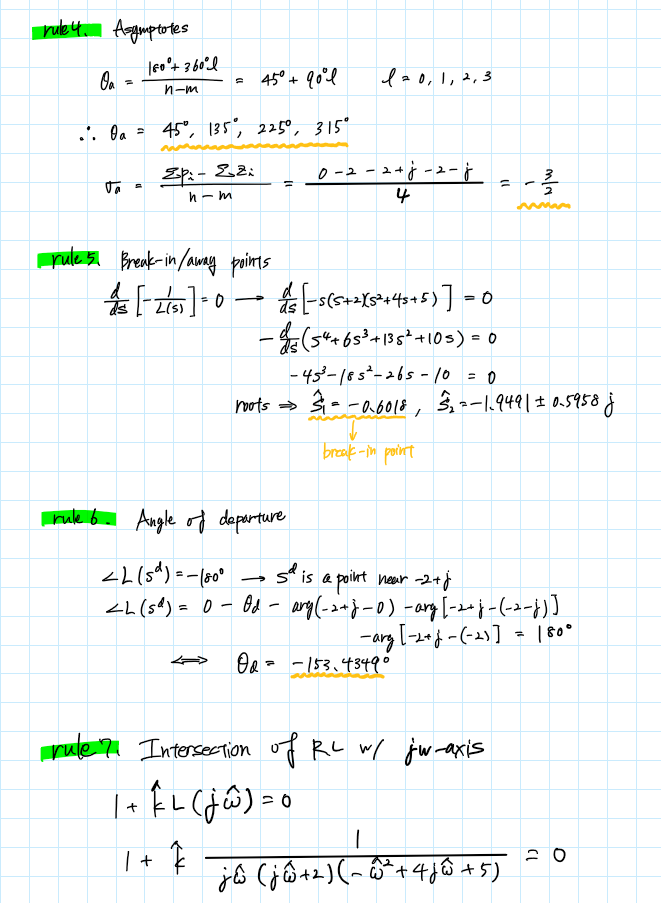 rule 4. Asymptotes
θa = (180° + 360°l)/(n-m) = 45° + 90°l l = 0, 1, 2, 3
∴ θa = 45°, 135°, 225°, 315°
σa = (Σpi - Σzi)/(n-m) = (0-2-2+j-2-j)/4 = -3/2
rule 5. Break-in/away points
d/ds [-1/L(s)] = 0 → d/ds [-s(s+2)(s²+4s+5)] = 0
-d/ds (s⁴+6s³+13s²+10s) = 0
-4s³-18s²-26s-10 = 0
roots ⇒ ŝ₁ = -0.6018, ŝ₂ = -1.9491 ± 0.5958j
↓
break-in point
rule 6. Angle of departure
∠L(sᵈ) = -180° → sᵈ is a point near -2+j
∠L(sᵈ) = 0 - θd - arg(-2+j-0) - arg[-2+j-(-2-j)]
-arg[-2+j-(-2)] = 180°
⟺ θd = -153.4349°
rule 7. Intersection of RL w/ jw-axis
1 + k̂ L(jω̂) = 0
1 + k̂ 1/(jω̂(jω̂+2)(-ω̂²+4jω̂+5)) = 0